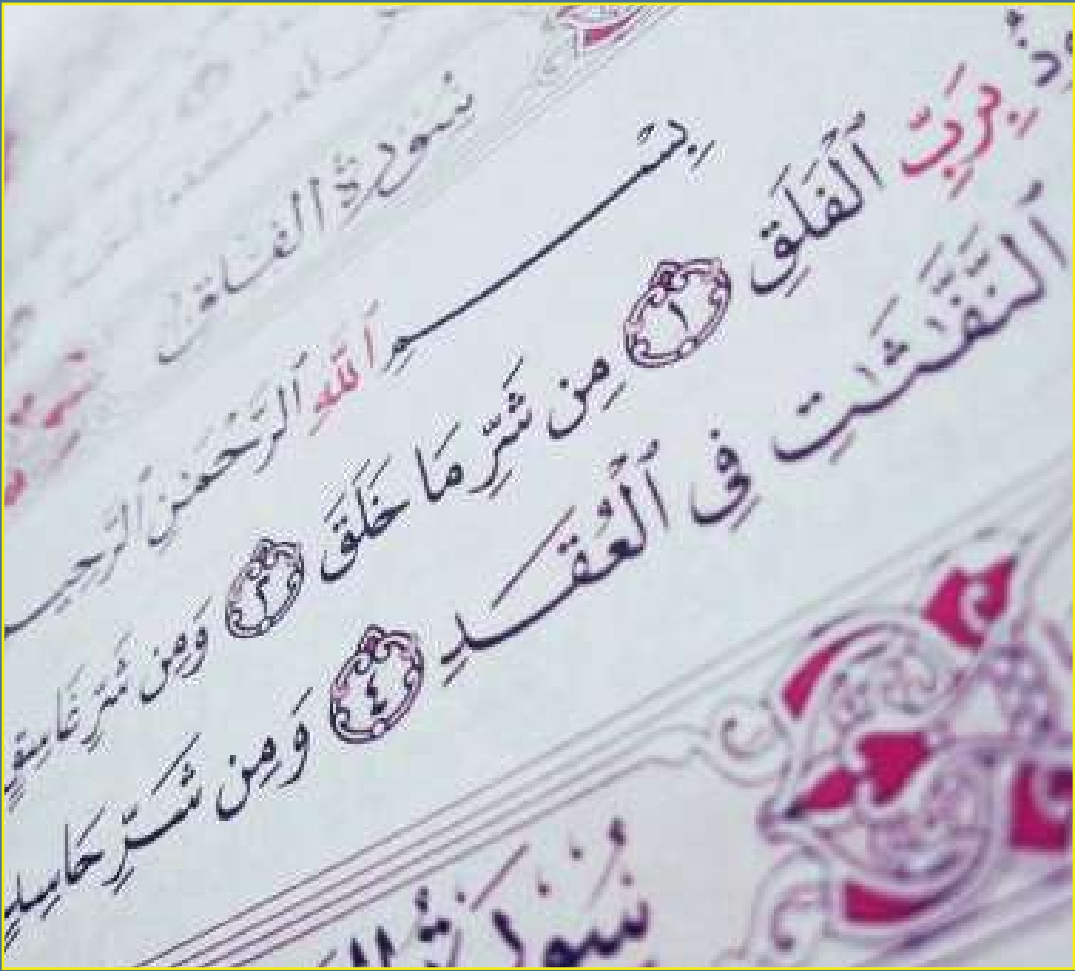 سُورَةُ الفَلَق
بِسْمِ ٱللَّهِ ٱلرَّحْمَٰنِ ٱلرَّحِيمِ
بِرَبِّ ٱلْفَلَقِ ١ مِن شَرِّ مَا خَلَقَ ٢ وَمِن شَرِّ غَاسِقٍ
ٱلنَّفَّٰثَٰتِ فِى ٱلْعُقَدِ ٤ وَمِن شَرِّ حَاسِدٍ
سُورَةُ